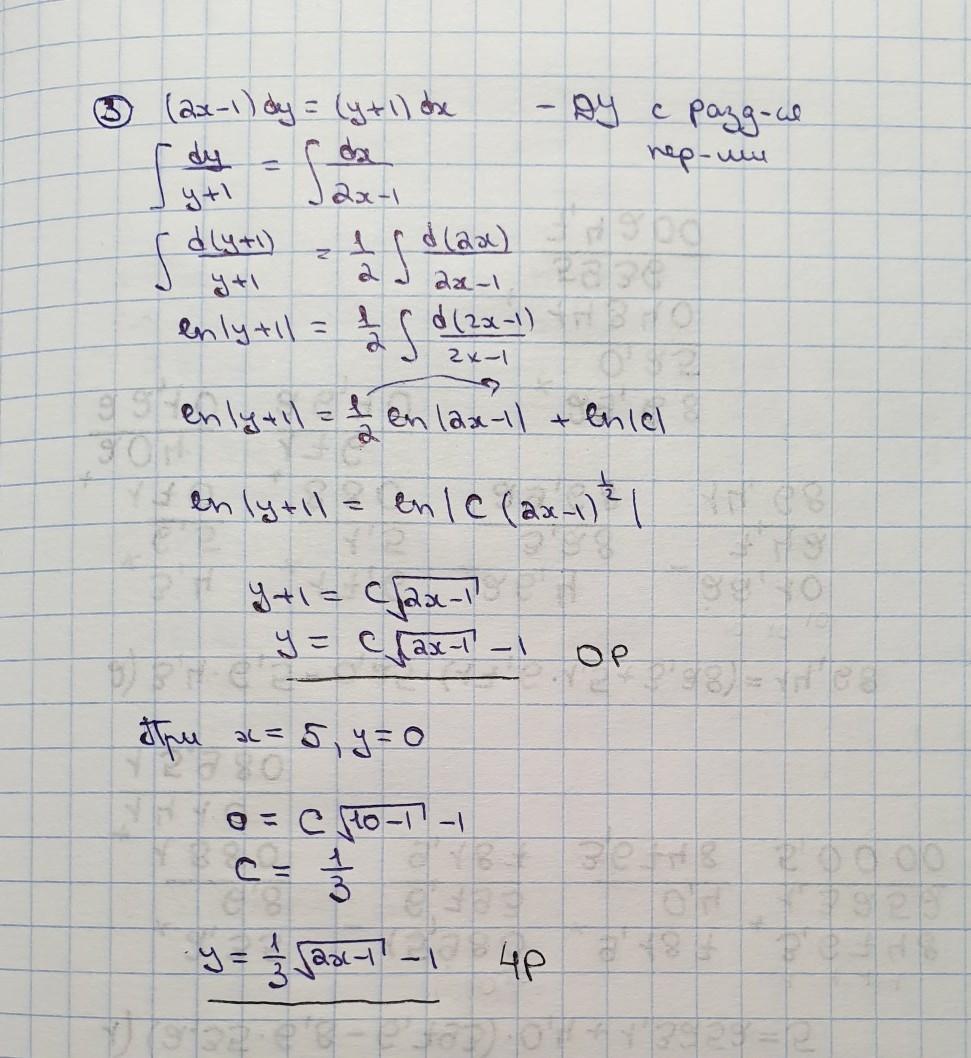 ③ (2x-1)dy = (y+1)dx - ДУ с разд-ся
пер-ми
∫ dy/(y+1) = ∫ dx/(2x-1)
∫ d(y+1)/(y+1) = 1/2 ∫ d(2x)/(2x-1)
ln|y+1| = 1/2 ∫ d(2x-1)/(2x-1)
ln|y+1| = 1/2 ln|2x-1| + ln|C|
ln|y+1| = ln|C(2x-1)^(1/2)|
y+1 = C√(2x-1)
y = C√(2x-1) - 1 ОР
При x = 5, y = 0
0 = C√(10-1) - 1
C = 1/3
y = 1/3 √(2x-1) - 1 ЧР